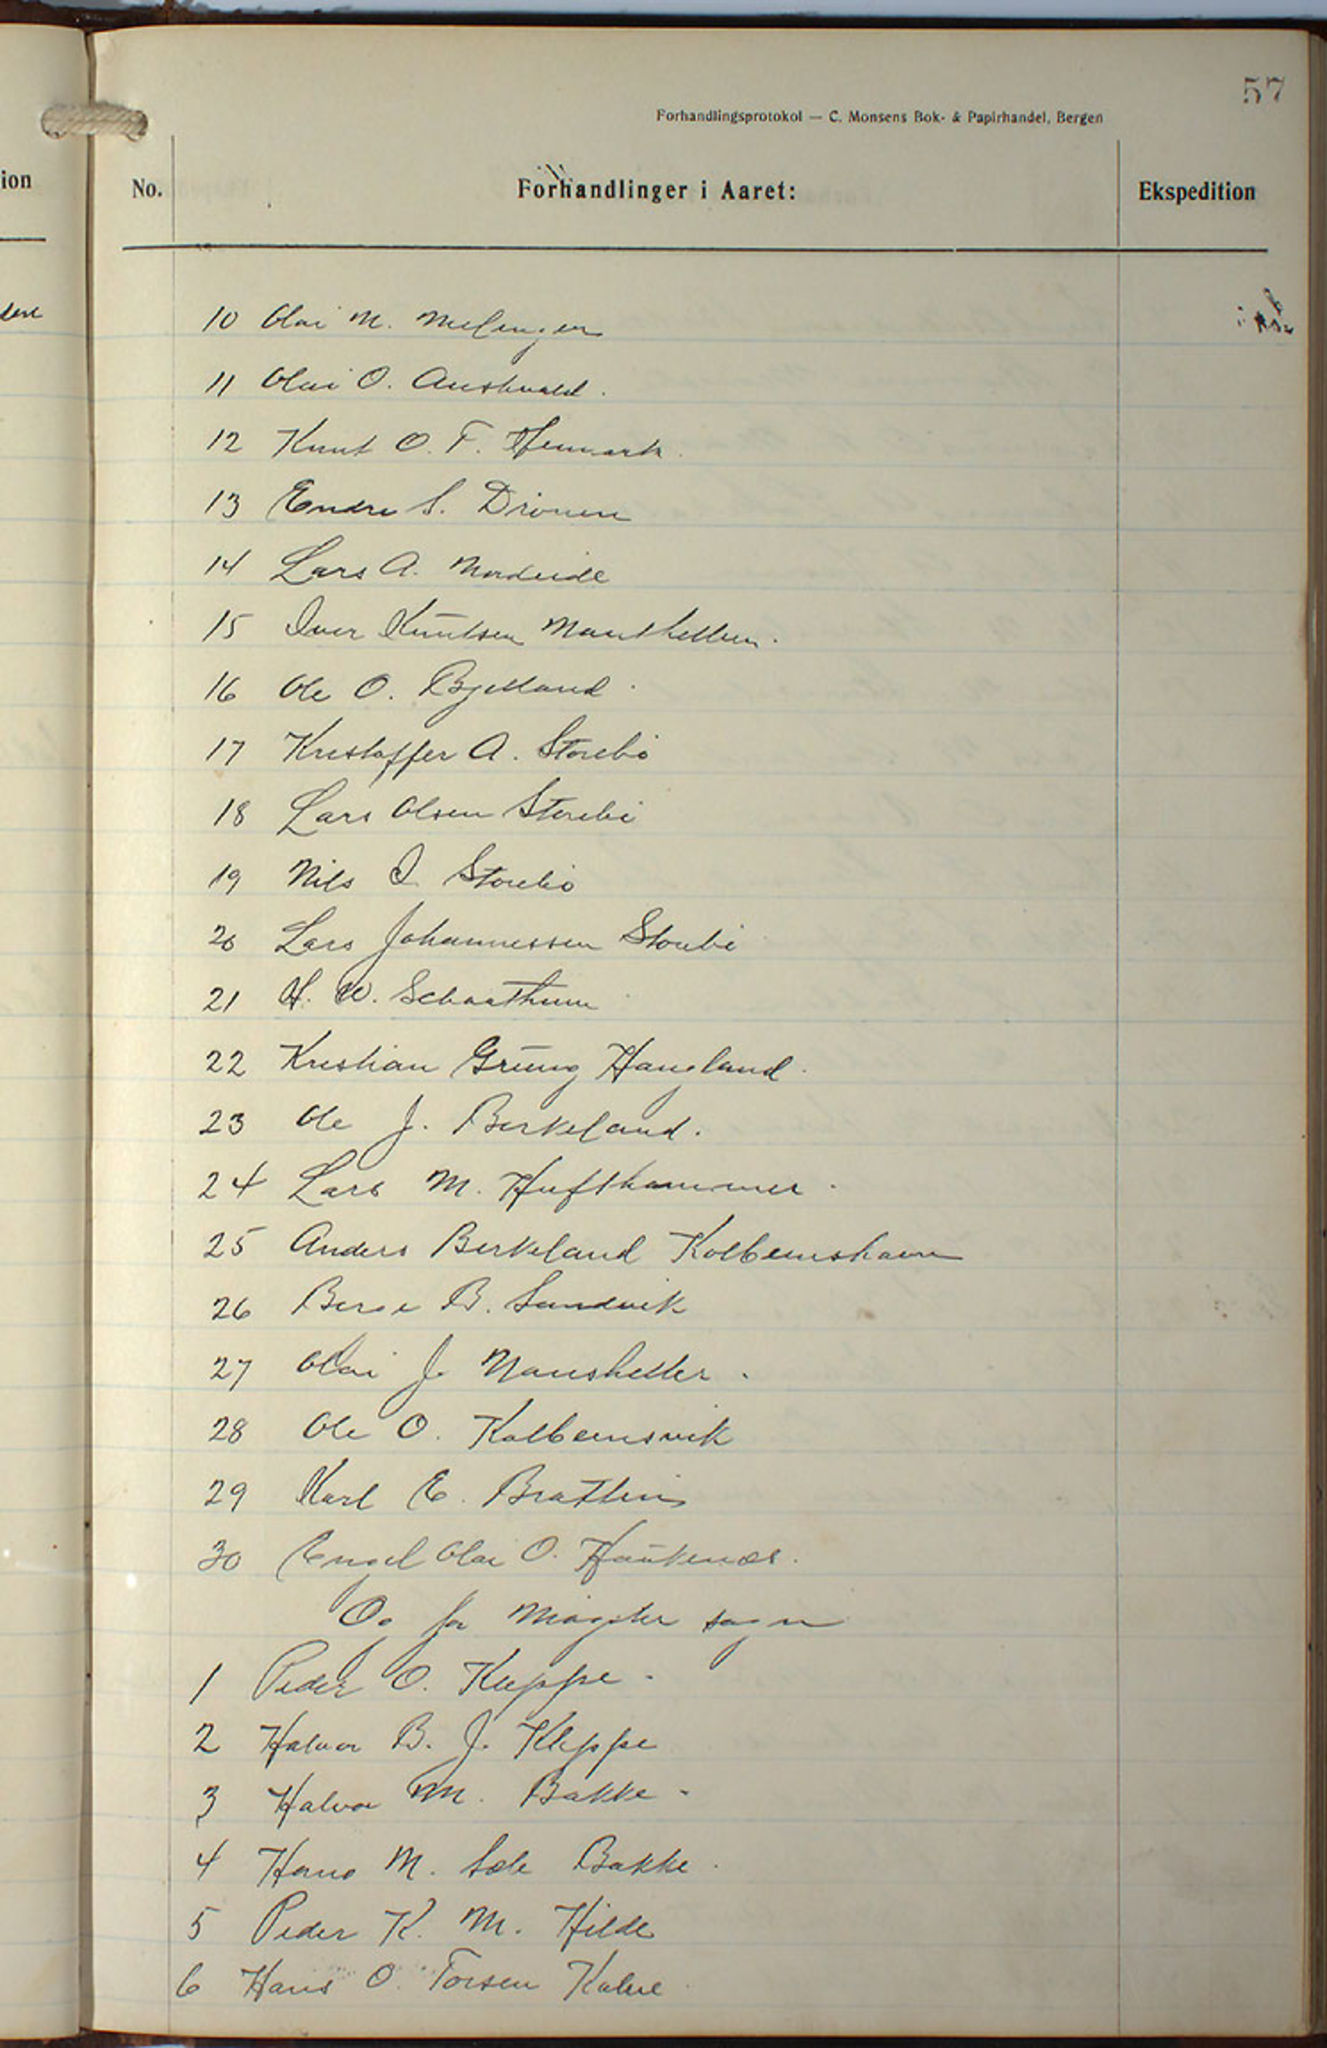 57
Forhandlingsprotokol — C. Monsens Bok- & Papirhandel, Bergen
ion
No.
Forhandlinger i Aaret:
Ekspedition
10 Olai M. Melingen
11 Olai O. Austevold.
12 Knut O. T. Heimark.
13 Endre S. Drönen
14 Lars A. Mordeide
15 Iver Knutsen Nausthellen.
16 Ole O. Bjelland.
17 Kristoffer A. Storebö
18 Lars Olsen Storebö
19 Nils I. Storebö
20 Lars Johannessen Storebö
21 H. W. Schaathun
22 Kristian Grung Haugland.
23 Ole J. Birkeland.
24 Lars M. Hufthammer.
25 Anders Birkeland Kolbeinshavn
26 Berge B. Sandvik
27 Olai J. Nausheller.
28 Ole O. Kolbeinsvik
29 Karl E. Brattli
30 Engel Olai O. Haukenæs.
Og for Mögster sogn
1 Peder O. Kleppe.
2 Halvor B. J. Kleppe
3 Halvor M. Bakke.
4 Hans M. Bakke.
5 Peder K. M. Hilde
6 Hans O. Torsen Kalve